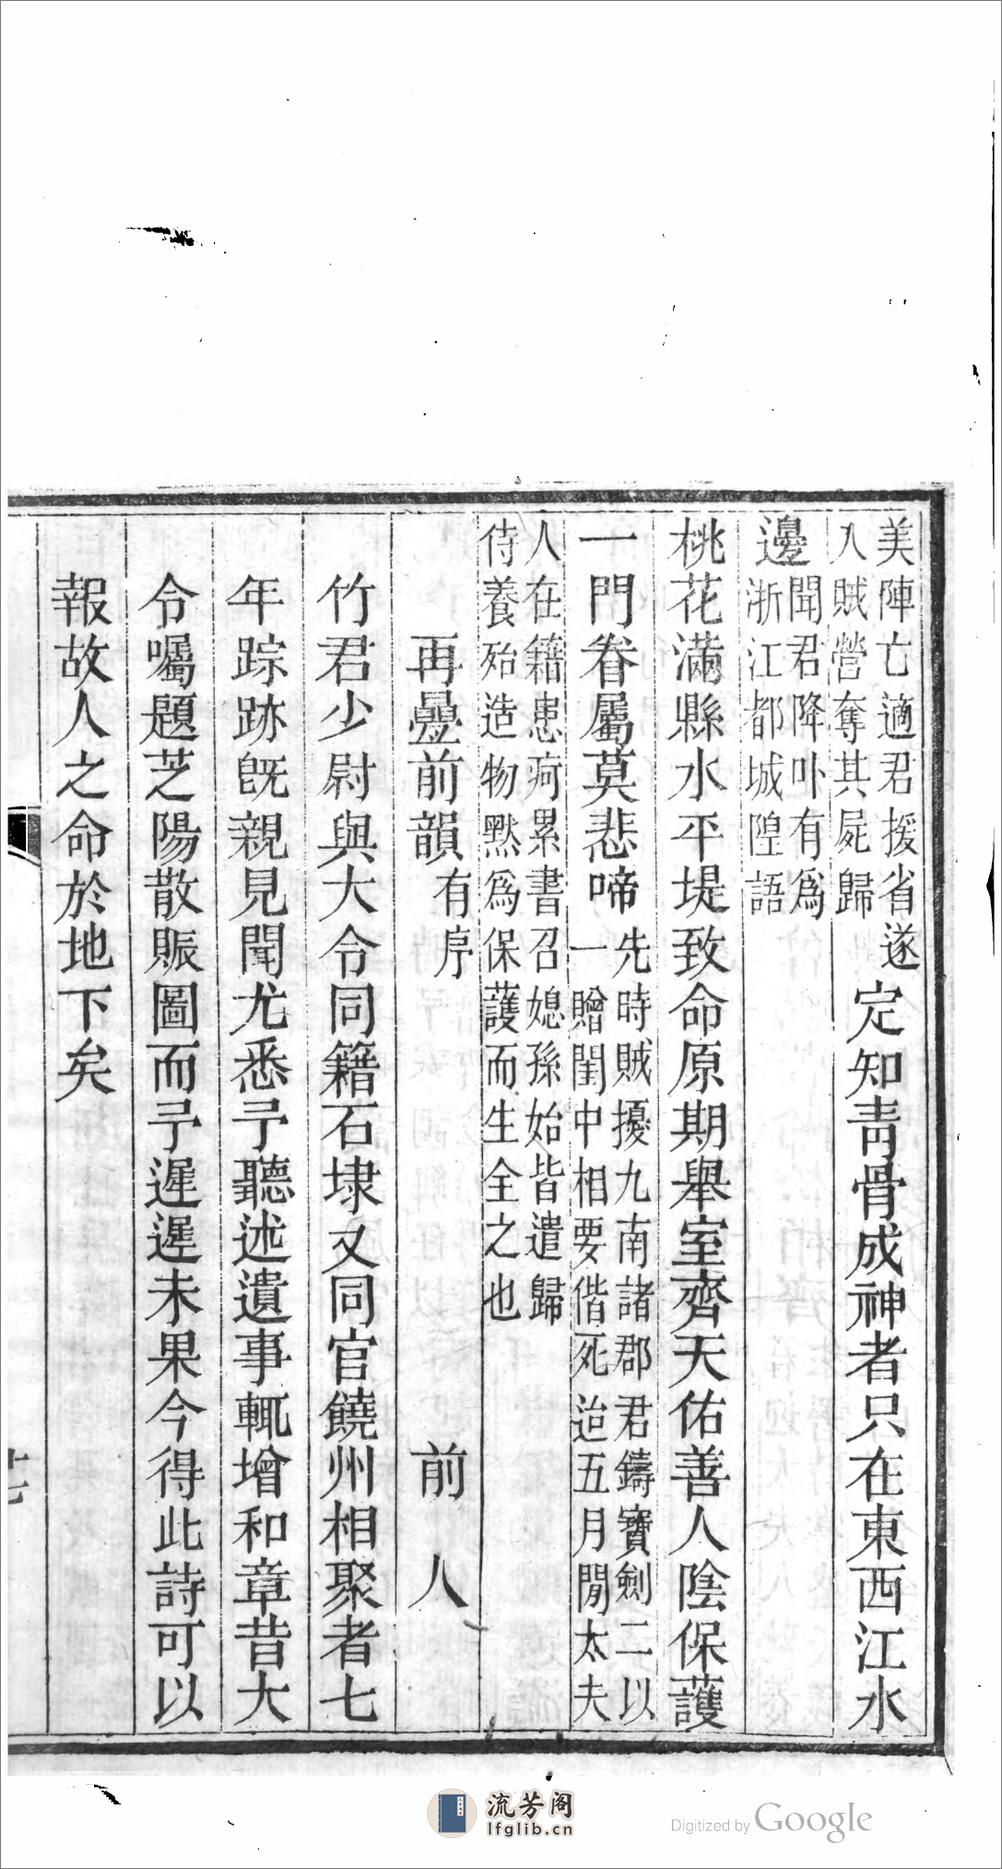 美陣亡適君援省遂
入賊營奪其屍歸
定知靑骨成神者只在東西江水
邊
聞君降卟有爲
浙江都城隍語
桃花滿縣水平堤致命原期舉室齊天佑善人陰保護
一門眷屬莫悲啼
先時賊擾九南諸郡君鑄寶劍二以
一贈閨中相要偕死迨五月閒太夫
人在籍患疴累書召媳孫始皆遣歸
侍養殆造物默爲保護而生全之也
再疊前韻有序 前人
竹君少尉與大令同籍石埭又同官饒州相聚者七
年踪跡旣親見聞尤悉予聽述遺事輒增和章昔大
令囑題芝陽散賑圖而予遲遲未果今得此詩可以
報故人之命於地下矣
流芳阁
lfglib.cn
Digitized by Google